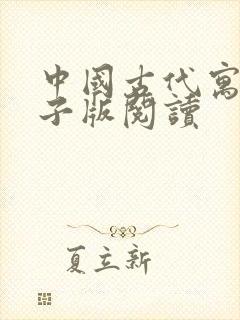 中國古代寓
子版閱讀
夏立新